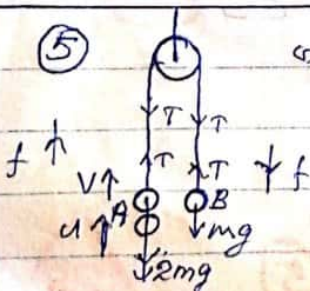 5
T T
f T T f
V A B
u mg
2mg